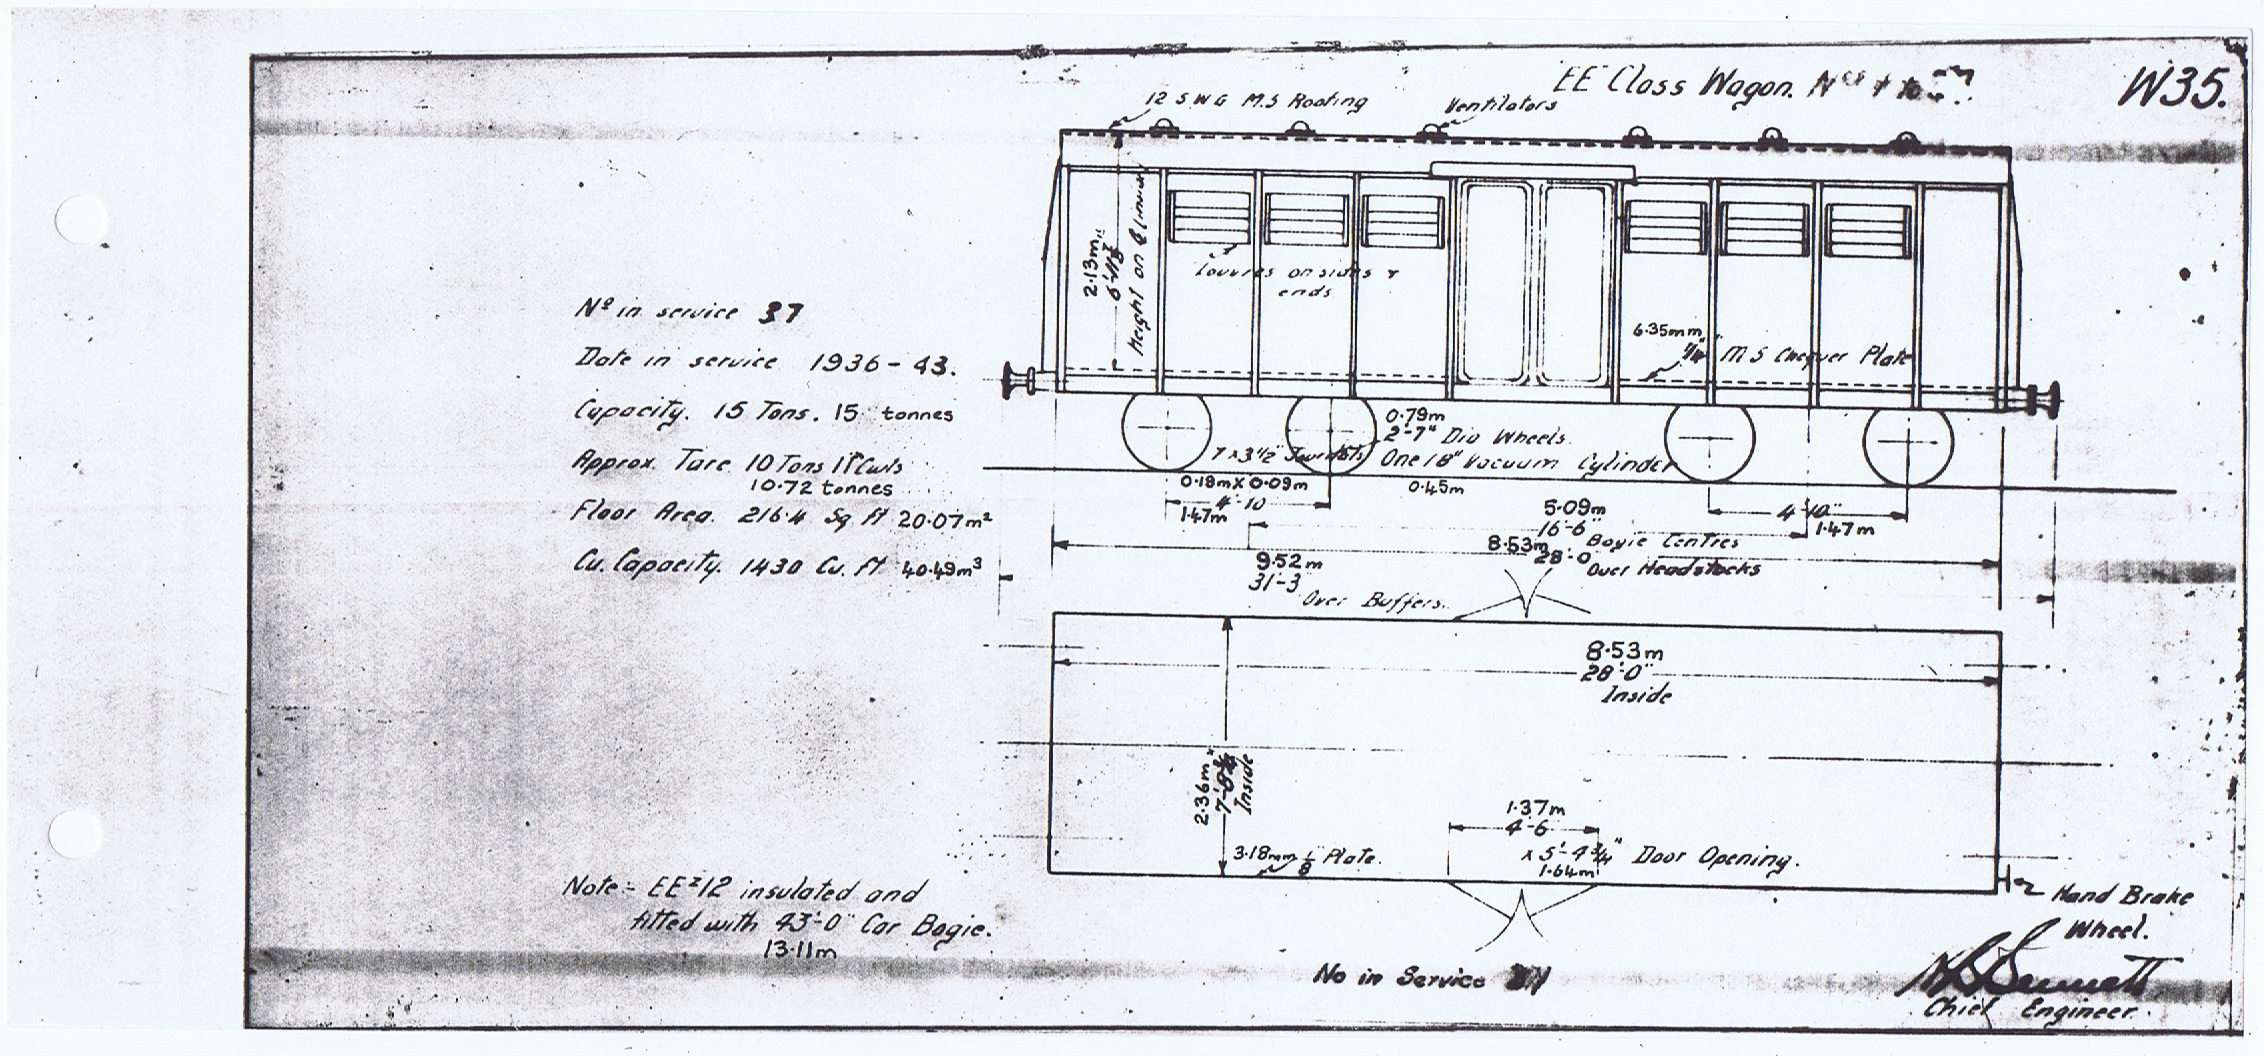 EE Class Wagon. Nos
W35.
12 S W G M.S Roofing
Ventilators
2.13m
Height on
Louvres on sides &
ends
6.35mm
1/4" M S Chequer Plate
No in service 37
Date in service 1936-43.
Capacity. 15 Tons. 15 tonnes
Approx. Tare 10 Tons Cwts
10.72 tonnes
Floor Area. 216.4 Sq Ft 20.07m²
Cu. Capacity. 1430 Cu. Ft 40.49m³
0.79m
2'-7" Dia Wheels.
7 x 3 1/2 Journals
One 18" Vacuum Cylinder
0.18m x 0.09m
0.45m
4'-10
1.47m
5.09m
16'-6"
Bogie Centres
4'-10"
1.47m
8.53m
28'-0
Over Headstocks
9.52m
31'-3
Over Buffers.
8.53m
28'-0"
Inside
2.36m
Inside
1.37m
4'-6
3.18mm 1/8" Plate.
x 5'-4 3/4" Door Opening.
1.64m
Hand Brake
Wheel.
Note:- EE 12 insulated and
fitted with 43'-0" Car Bogie.
13.11m
No in Service
Chief Engineer.